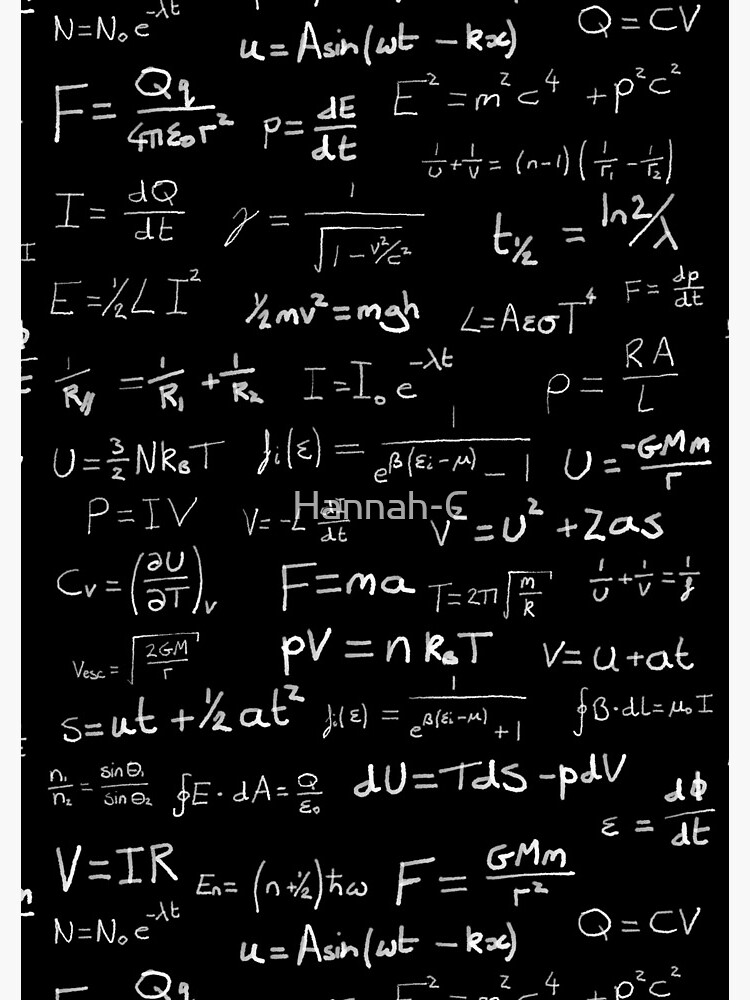 N=N₀e^-λt
u=Asin(ωt - kx)
Q=CV
F=Qq/4πε₀r²
p=dE/dt
E²=m²c⁴+p²c²
1/u+1/v=(n-1)(1/r₁-1/r₂)
I=dQ/dt
γ=1/√1-v²/c²
t½=ln2/λ
E=½LI²
½mv²=mgh
L=AεσT⁴
F=dp/dt
1/R//=1/R₁+1/R₂
I=I₀e^-λt
ρ=RA/L
U=3/2NkBT
fi(ε)=1/e^β(εi-μ)-1
U=-GMm/r
P=IV
V=-L dI/dt
Hannah-C
v²=u²+2as
Cv=(∂U/∂T)v
F=ma
T=2π√m/k
1/u+1/v=1/f
Vesc=√2GM/r
pV=nkBT
V=u+at
s=ut+½at²
fi(ε)=1/e^β(εi-μ)+1
∮B·dL=μ₀I
n₁/n₂=sinθ₁/sinθ₂
∮E·dA=Q/ε₀
dU=TdS-pdV
ε=dΦ/dt
V=IR
En=(n+½)ħω
F=GMm/r²
N=N₀e^-λt
u=Asin(ωt - kx)
Q=CV
Qq
E²=m²c⁴+p²c²